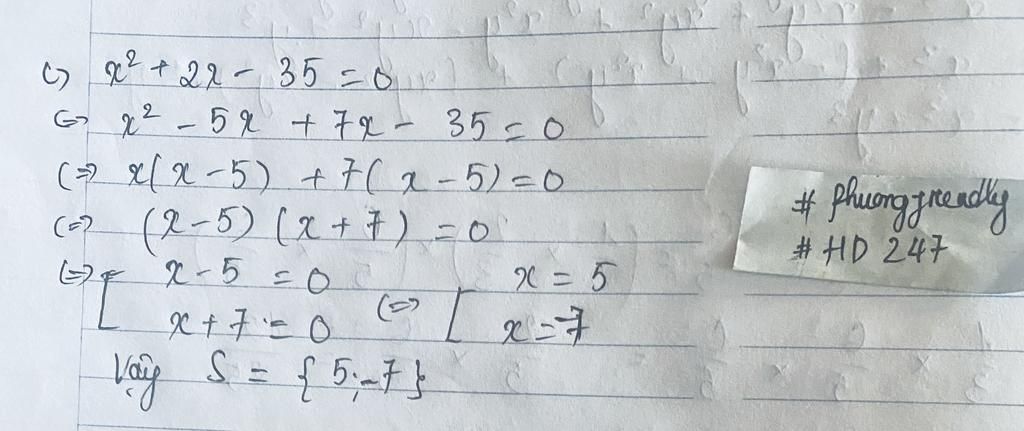 c) x² + 2x - 35 = 0
<=> x² - 5x + 7x - 35 = 0
<=> x(x - 5) + 7(x - 5) = 0
<=> (x - 5)(x + 7) = 0
<=> [ x - 5 = 0 <=> [ x = 5
x + 7 = 0 x = -7
Vậy S = { 5; -7 }
# phuonggreendly
# HD 247